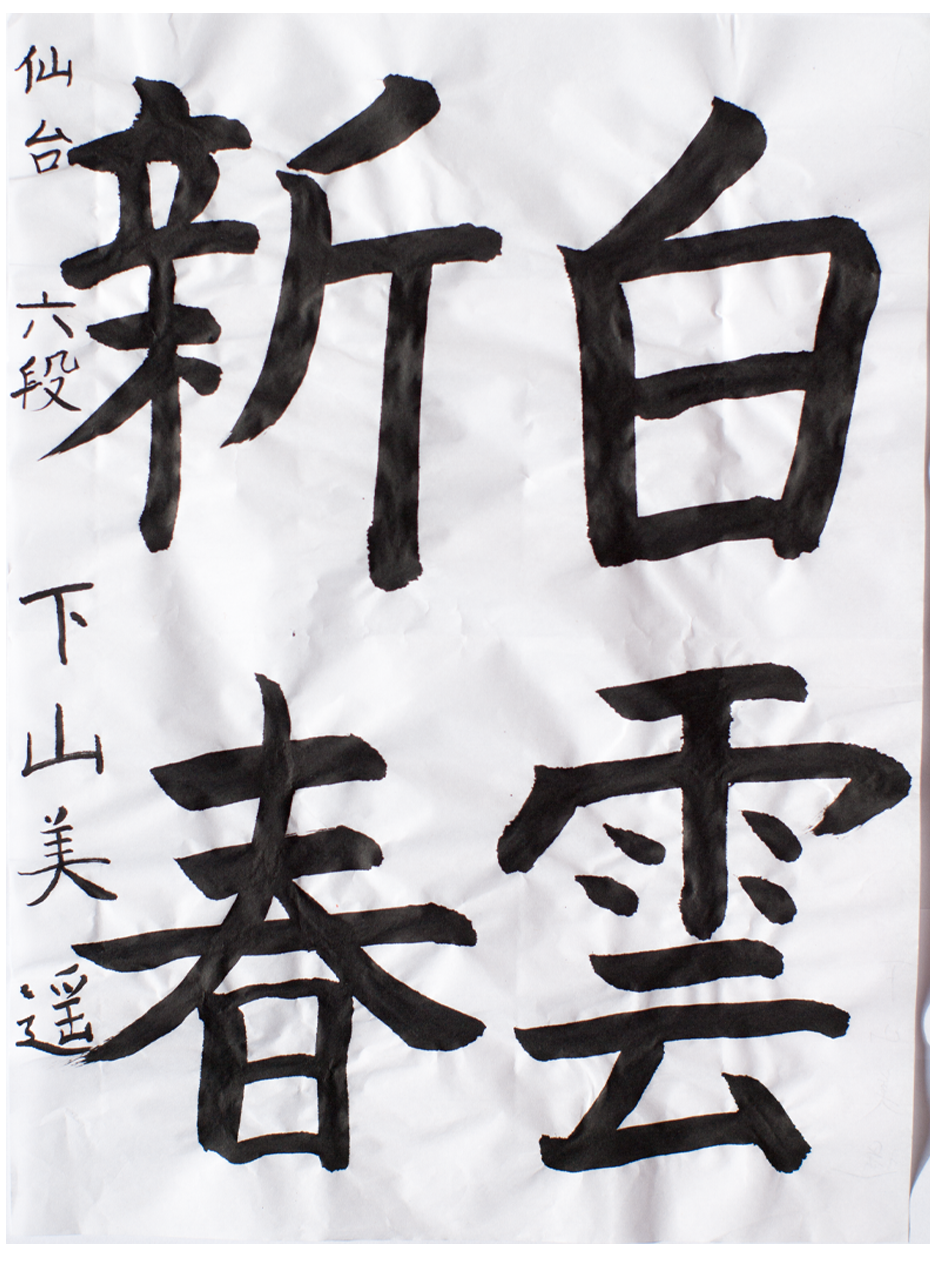 白雲
新春
仙台 六段 下山美遥